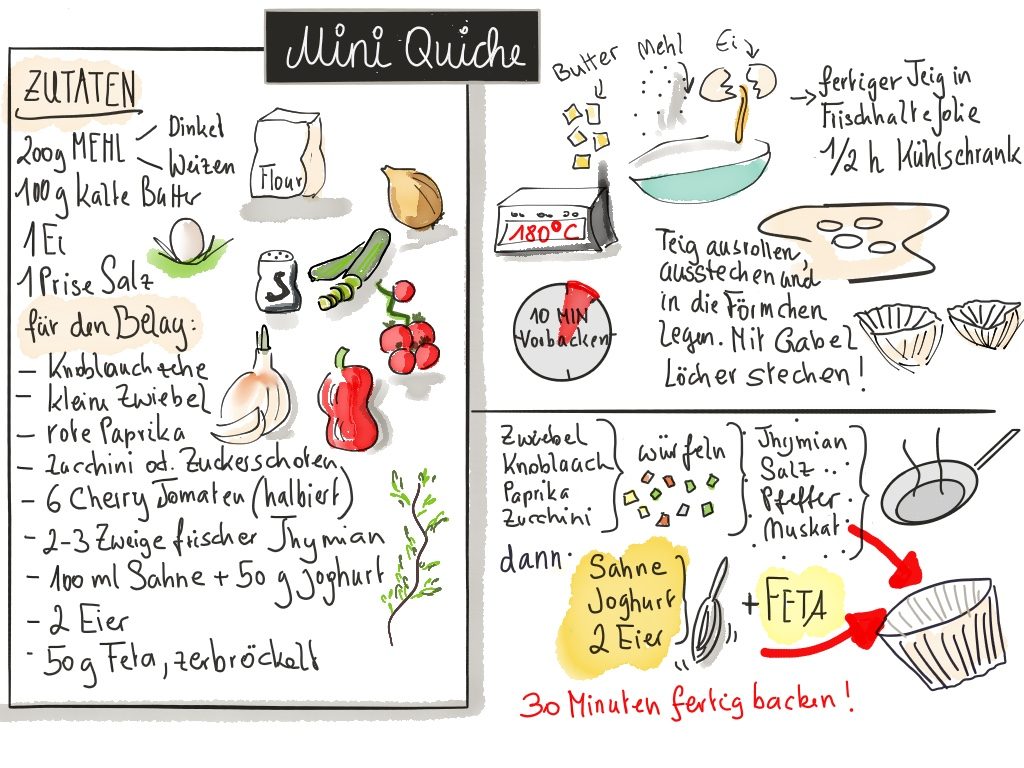 Mini Quiche
ZUTATEN
200g MEHL
Dinkel
Weizen
100g kalte Butter
1 Ei
1 Prise Salz
Flour
S
für den Belag:
- Knoblauchzehe
- kleine Zwiebel
- rote Paprika
- Zucchini od. Zuckerschoten
- 6 Cherry Tomaten (halbiert)
- 2-3 Zweige frischer Thymian
- 100 ml Sahne + 50 g Joghurt
- 2 Eier
- 50g Feta, zerbröckelt
Butter
Mehl
Ei
→ fertiger Teig in
Frischhaltefolie
1/2 h Kühlschrank
180°C
10 MIN
Vorbacken
Teig ausrollen,
ausstechen und
in die Förmchen
legen. Mit Gabel
Löcher stechen!
Zwiebel
Knoblauch
Paprika
Zucchini
würfeln
Thymian
Salz
Pfeffer
Muskat
dann
Sahne
Joghurt
2 Eier
+ FETA
30 Minuten fertig backen!